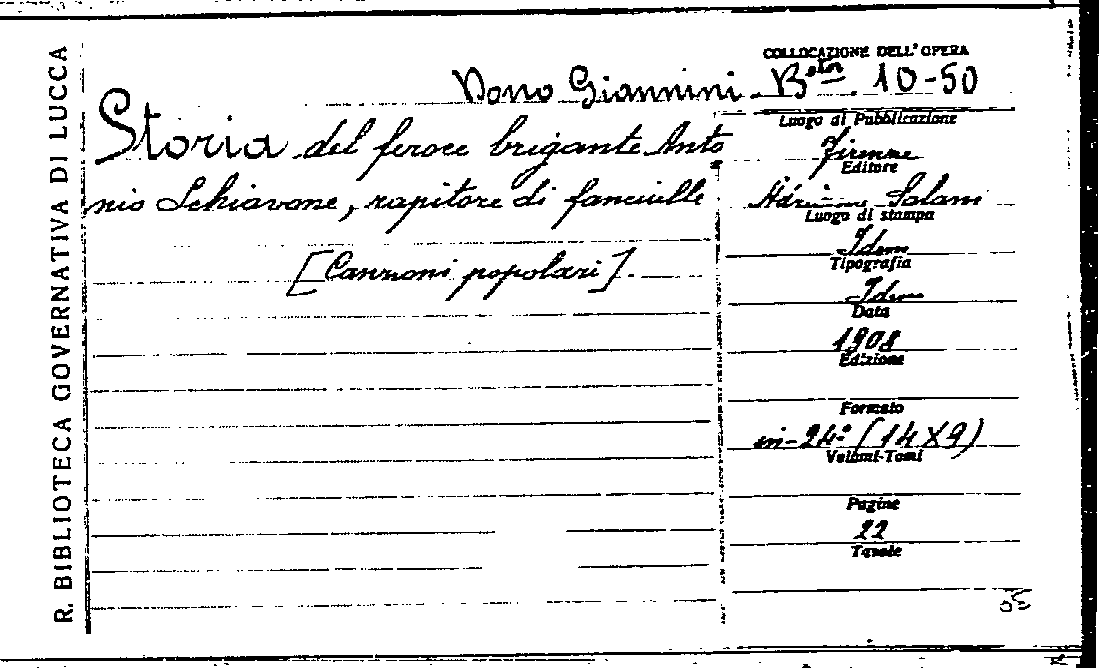 R. BIBLIOTECA GOVERNATIVA DI LUCCA
COLLOCAZIONE DELL'OPERA
Dono Giannini. B.sta 10-50
Storia del feroce brigante Anto
nio Schiavone, rapitore di fanciulle
[Canzoni popolari].
Luogo di Pubblicazione
Firenze
Editore
Adriano Salani
Luogo di stampa
Idem
Tipografia
Idem
Data
1908
Edizione
Formato
in-24° (14X9)
Volumi-Tomi
Pagine
22
Tavole